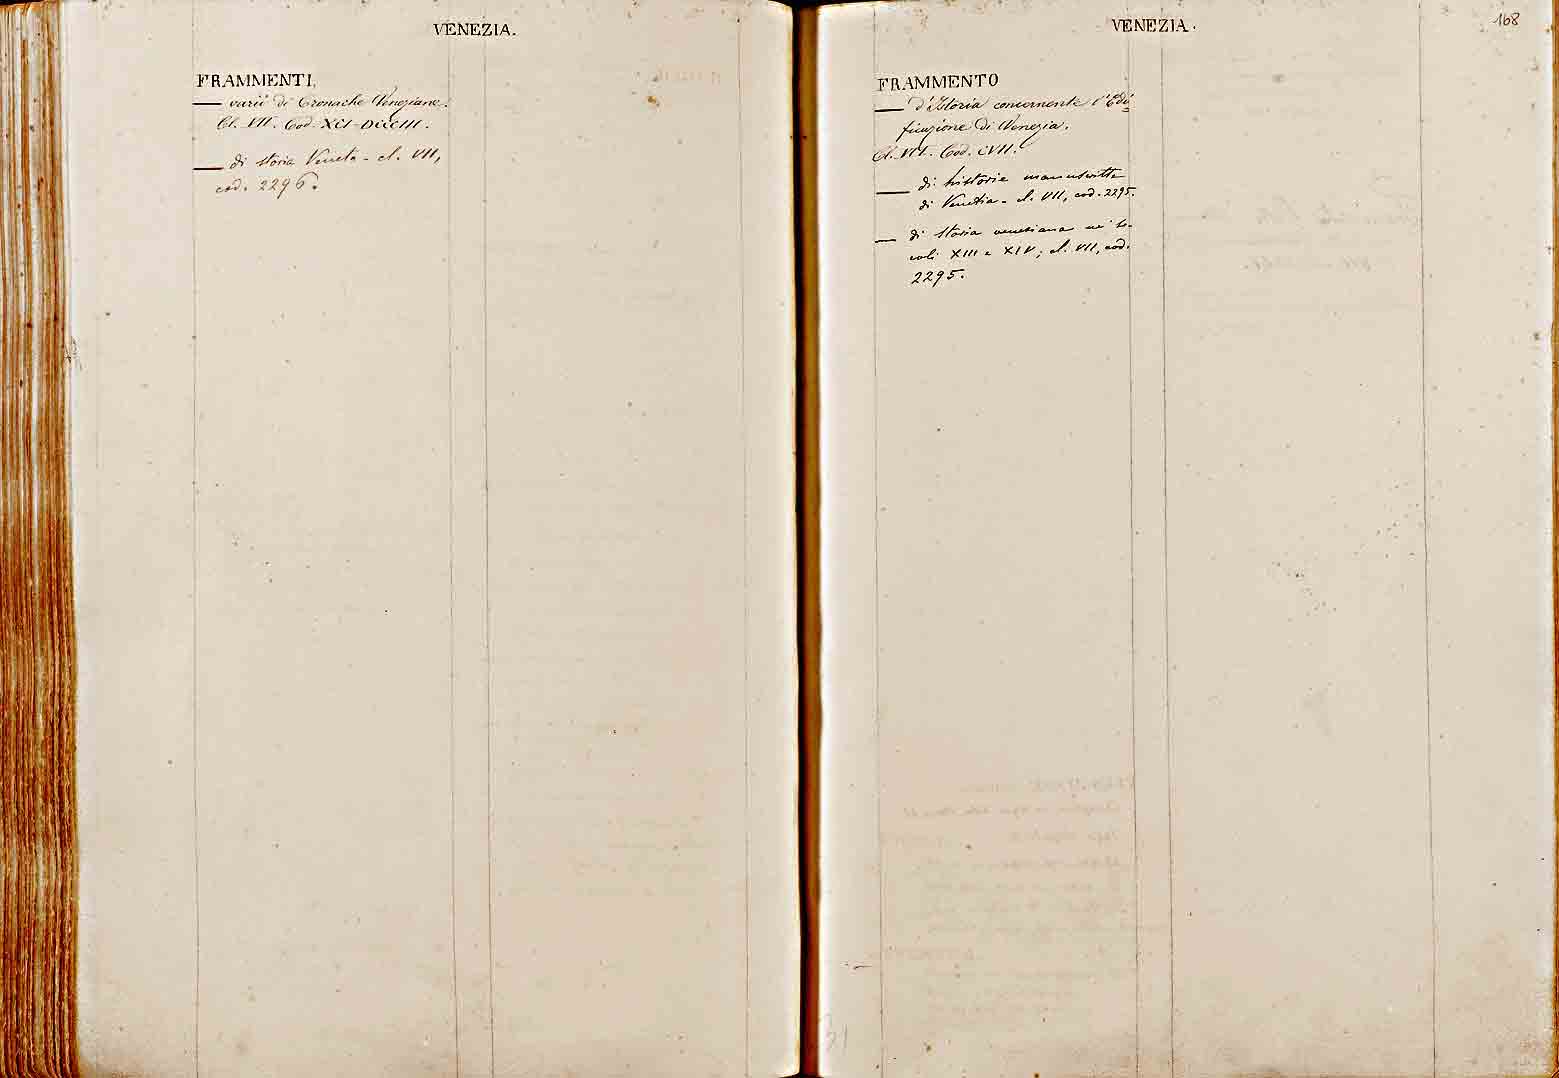 VENEZIA.
FRAMMENTI.
— varii di Cronache Veneziane.
Cl. VII. Cod. XCI-DCCCIII.
— di storia Veneta - cl. VII,
cod. 2296.
VENEZIA.
168
FRAMMENTO
— d'Istoria concernente l'Edi
ficazione di Venezia.
Cl. VII. Cod. CVII.
— di historie manuscritte
di Venetia - cl. VII, cod. 2295.
— di storia venetiana ne' se-
coli XIII e XIV; cl. VII, cod.
2295.